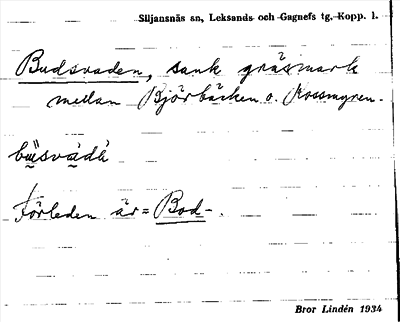 Siljansnäs sn, Leksands och Gagnefs tg. Kopp. l.
Budsvaden, sank gräsmark
mellan Björbäcken o. Kossmyren.
Förleden är = Bod-.
Bror Lindén 1934